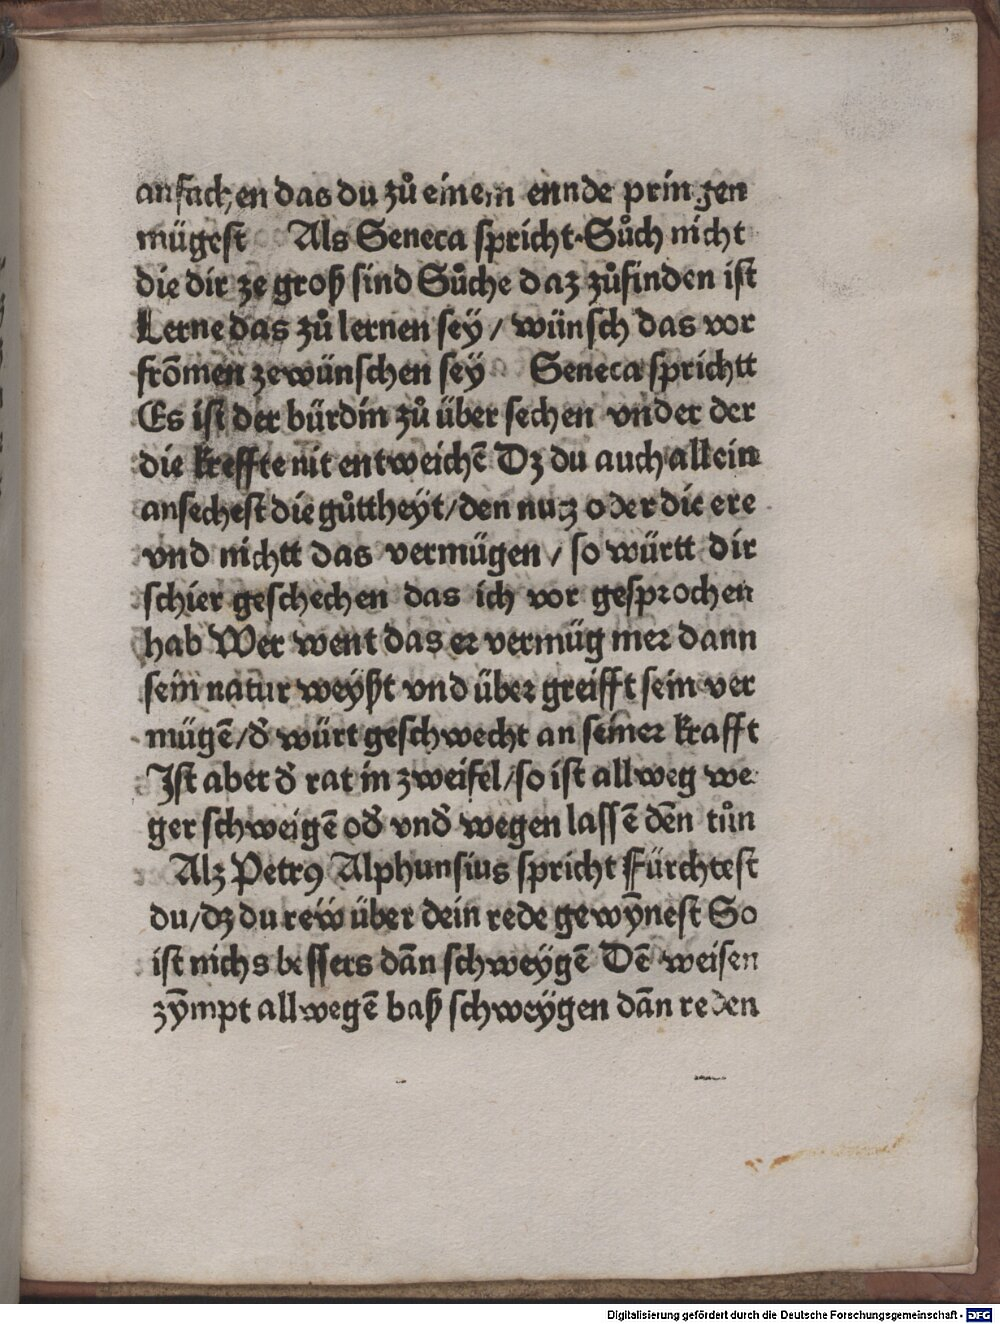 anfachen das du zů einem ennde pringen
mügest Als Seneca spricht·Sůch nicht
die dir ze groß sind Sůche daz zůfinden ist
Lerne das zů lernen sey / wünsch das vor
frõmen zewünschen sey Seneca sprichtt
Es ist der bürdin zů über sechen vnder der
die kreffte nit entweichẽ Dz du auch allein
ansechest die gůttheÿt/den nutz oder die ere
vnd nichtt das vermügen / so württ dir
schier geschechen das ich vor gesprochen
hab Wer went das er vermüg mer dann
sein natur weyßt vnd über greifft sein ver
mügẽ/ð würt geschwecht an seiner krafft
Ist aber ð rat in zweifel/so ist allweg we
ger schweigẽ oð vnð wegen lassẽ dẽn tůn
Alz Petrꝰ Alphunsius spricht Fürchtest
du/dz du reẅ über dein rede gewỹnest So
ist nichs bessers dãn schweÿgẽ Dẽ weisen
zỹmpt allwegẽ baß schweÿgen dãn reden
Digitalisierung gefördert durch die Deutsche Forschungsgemeinschaft - DFG